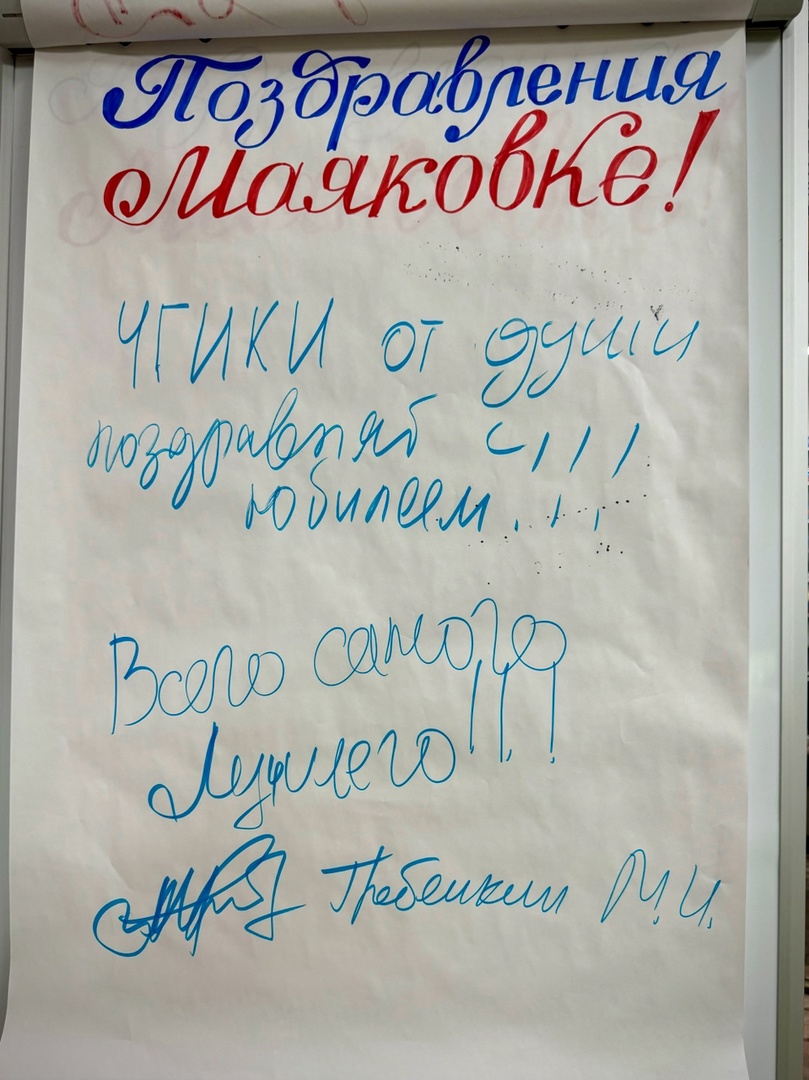 Поздравления
Маяковке!
ЧГИКИ от души
поздравляют с
юбилеем!!!
Всего самого
Лучшего!!!
М.И.